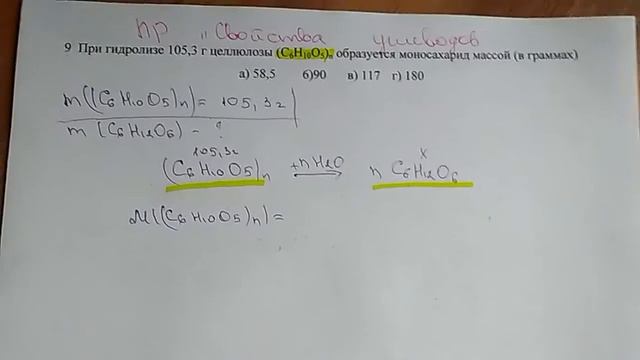 пр "Свойства углеводов
9 При гидролизе 105,3 г целлюлозы (C₆H₁₀O₅)ₙ образуется моносахарид массой (в граммах)
а) 58,5 б)90 в) 117 г) 180
m((C₆H₁₀O₅)n) = 105,3г
m (C₆H₁₂O₆) - ?
105,3г x
(C₆H₁₀O₅)n +nH₂O → n C₆H₁₂O₆
M((C₆H₁₀O₅)n) =